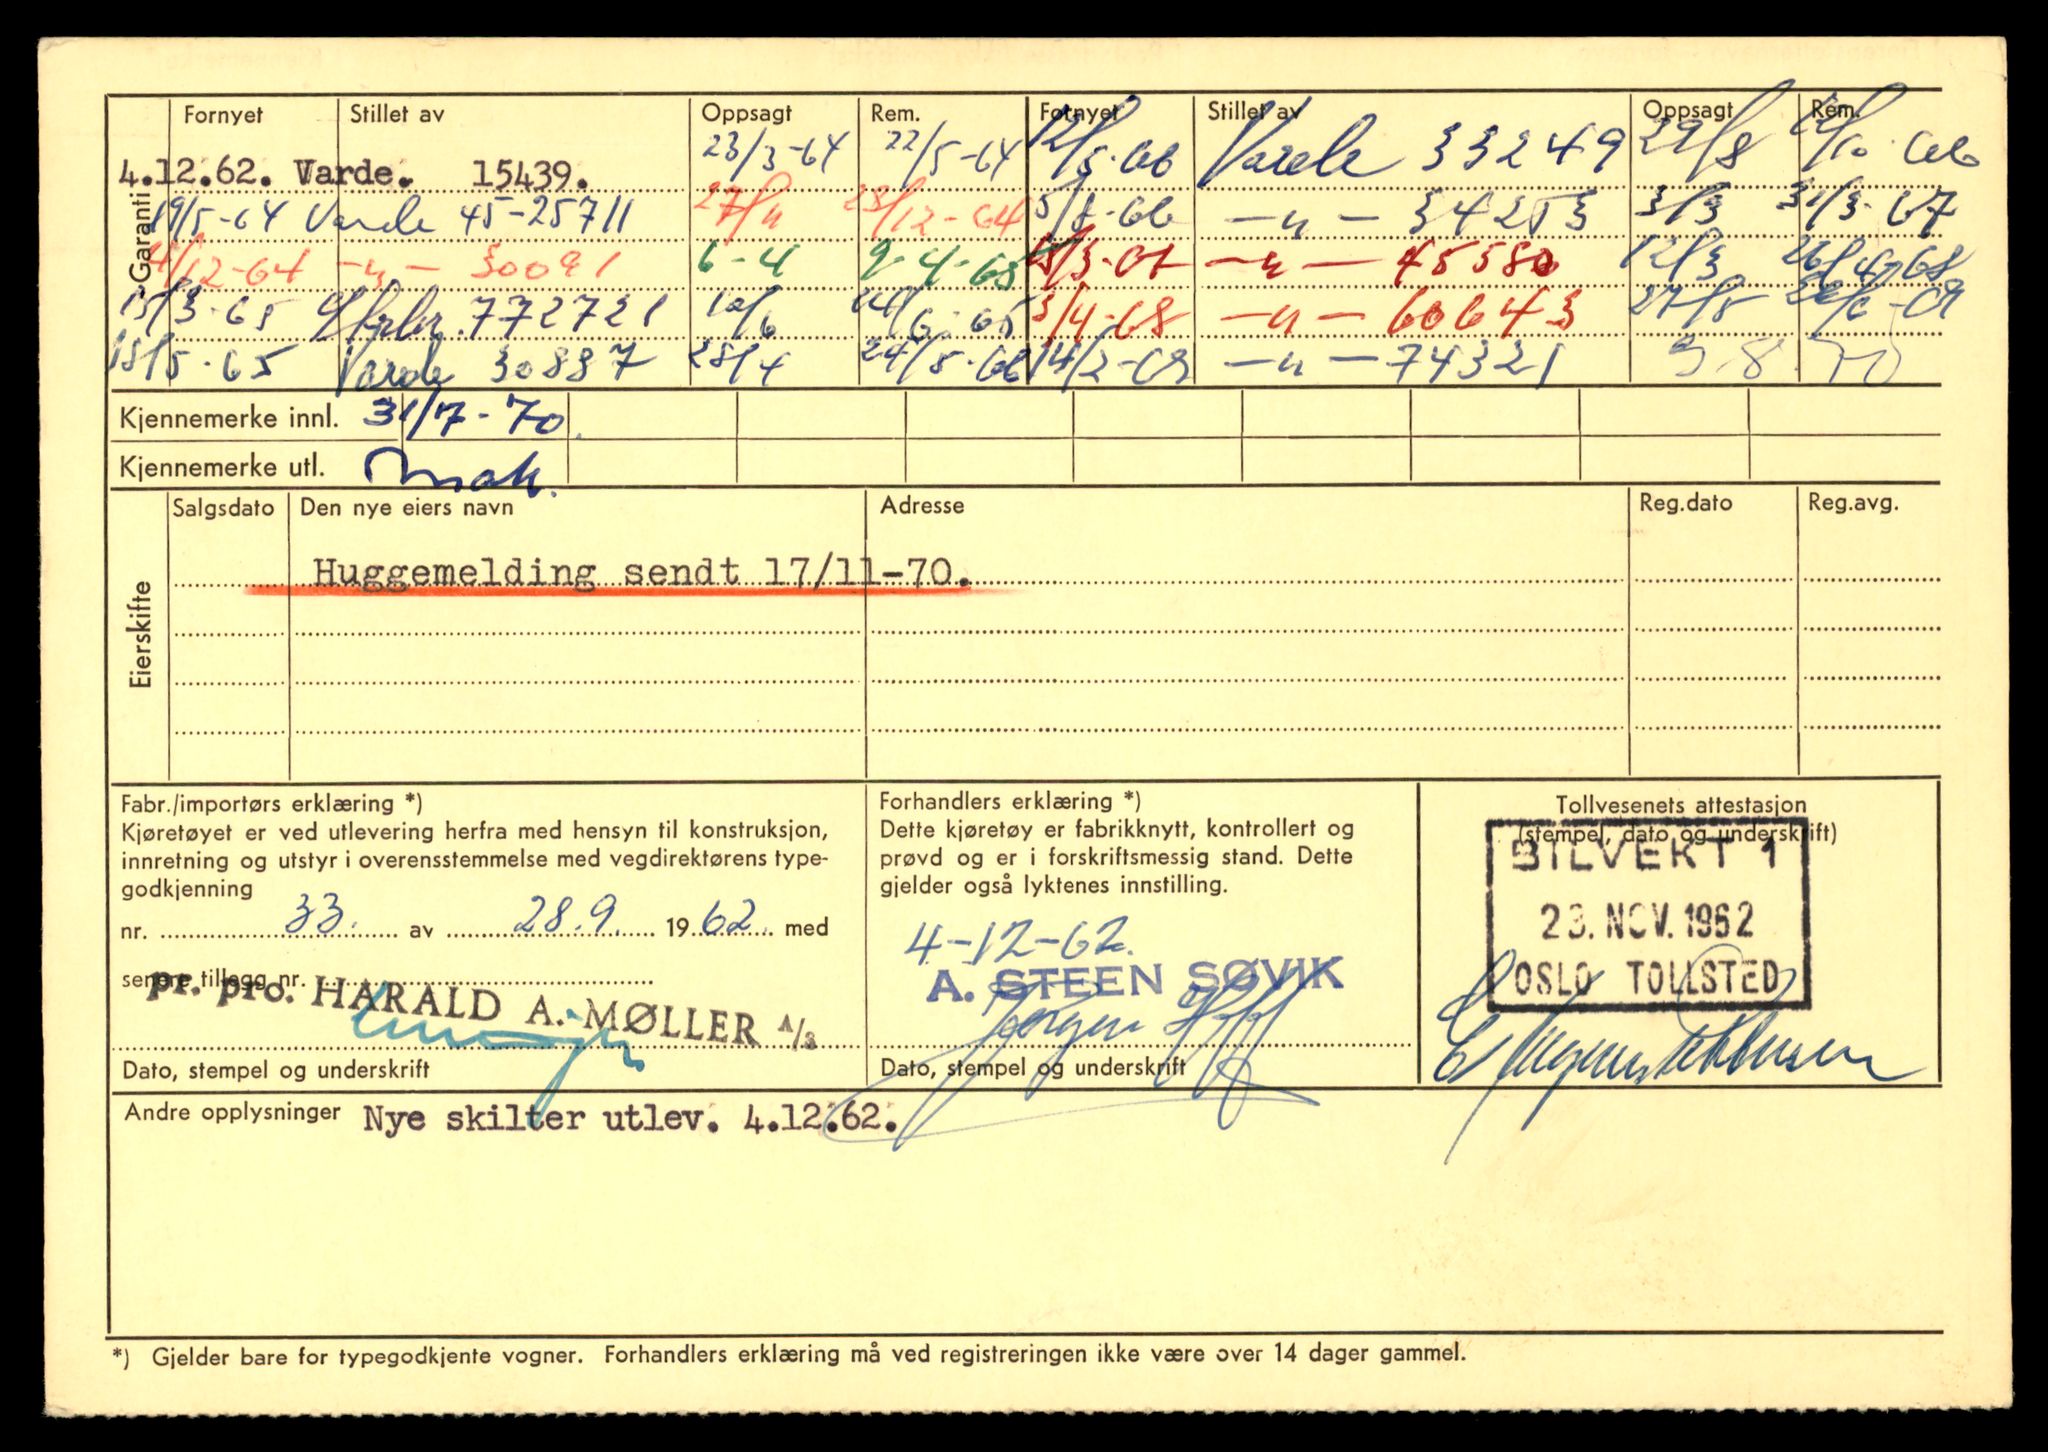 Garanti:
Fornyet Stillet av Oppsagt Rem. Fornyet Stillet av Oppsagt Rem.
4.12.62. Varde. 15439. 23/3-64 22/5-64 12/5-66 Varde 33249 29/8
19/5-64 Varde 45-25711 27/11 23/12-64 5/8-66 -"- 34253 3/3 31/3-67
4/12-64 -"- 30091 6-4 9-4-65 -"- 45580 12/3
13/3-65 772721 10/6 3/4-68 -"- 60643 27/5
18/5-65 Varde 30887 28/4 24/5-66 14/2-69 -"- 74321 3.8.70
Kjennemerke innl. 31/7-70.
Kjennemerke utl.
Eierskifte
Salgsdato Den nye eiers navn Adresse Reg.dato Reg.avg.
Huggemelding sendt 17/11-70.
Fabr./importørs erklæring *)
Kjøretøyet er ved utlevering herfra med hensyn til konstruksjon,
innretning og utstyr i overensstemmelse med vegdirektørens type-
godkjenning
nr. 33. av 28.9. 1962. med
senere tillegg nr.
pr. pro. HARALD A. MØLLER A/S
Dato, stempel og underskrift
Forhandlers erklæring *)
Dette kjøretøy er fabrikknytt, kontrollert og
prøvd og er i forskriftsmessig stand. Dette
gjelder også lyktenes innstilling.
4-12-62.
A. STEEN SØVIK
Jørgen
Dato, stempel og underskrift
Tollvesenets attestasjon
(stempel, dato og underskrift)
BILVEKT 1
23. NOV. 1962
OSLO TOLLSTED
Andre opplysninger Nye skilter utlev. 4.12.62.
*) Gjelder bare for typegodkjente vogner. Forhandlers erklæring må ved registreringen ikke være over 14 dager gammel.